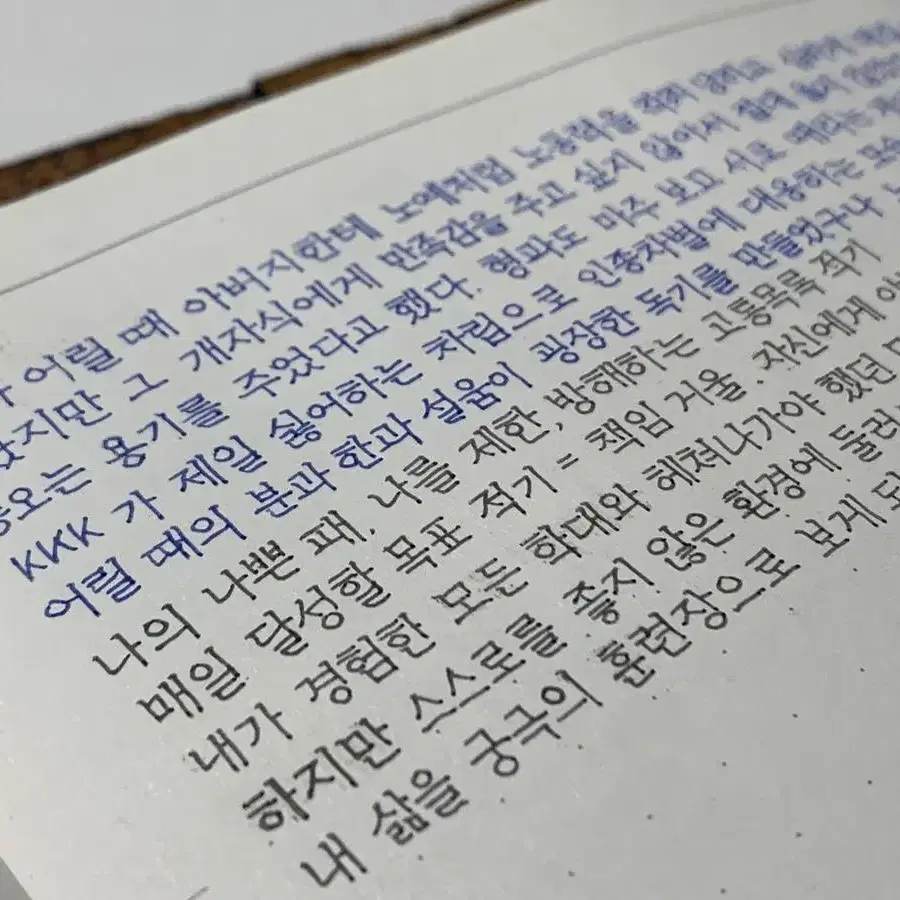 어릴 때 아버지한테 노예처럼 노동력을 착취 당하고
그 개자식에게 만족감을 주고 싶지 않아서 절대 울지
용기를 주었다고 했다. 형과도 마주 보고 서로 때리는
KKK 가 제일 싫어하는 차림으로 인종차별에 대응하는
어릴 때의 분과 한과 설움이 굉장한 독기를 만들었구나
나의 나쁜 패. 나를 제한, 방해하는 고통목록 적기
매일 달성할 목표 적기 = 책임 거울. 자신에게
내가 경험한 모든 학대와 헤쳐나가야 했던
하지만 스스로를 좋지 않은 환경에
내 삶을 궁극의 훈련장으로 보게